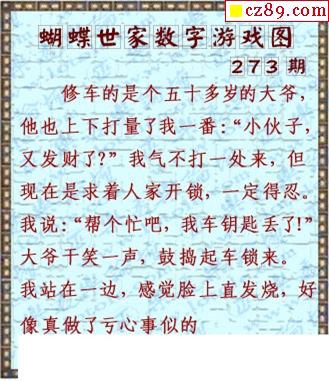 cz89.com
蝴蝶世家数字游戏图
273 期
修车的是个五十多岁的大爷，
他也上下打量了我一番：“小伙子，
又发财了？” 我气不打一处来，但
现在是求着人家开锁，一定得忍。
我说：“帮个忙吧，我车钥匙丢了！”
大爷干笑一声，鼓捣起车锁来。
我站在一边，感觉脸上直发烧，好
像真做了亏心事似的